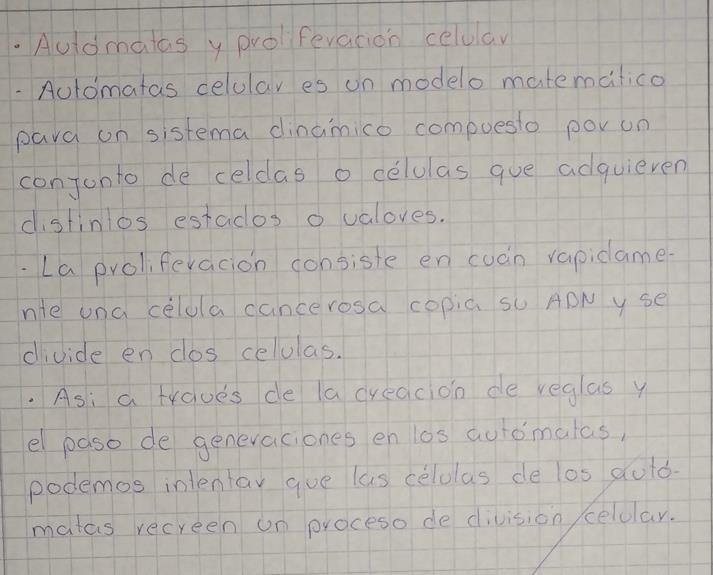 · Autómatas y proliferación celular
- Autómatas celular es un modelo matemático
para un sistema dinámico compuesto por un
conjunto de celdas o células que adquieren
distintos estados o valores.
- La proliferación consiste en cuán rapidame-
nte una célula cancerosa copia su ADN y se
divide en dos celulas.
· Asi a través de la creación de reglas y
el paso de generaciones en los autómatas,
podemos intentar que las células de los autó-
matas recreen un proceso de división celular.